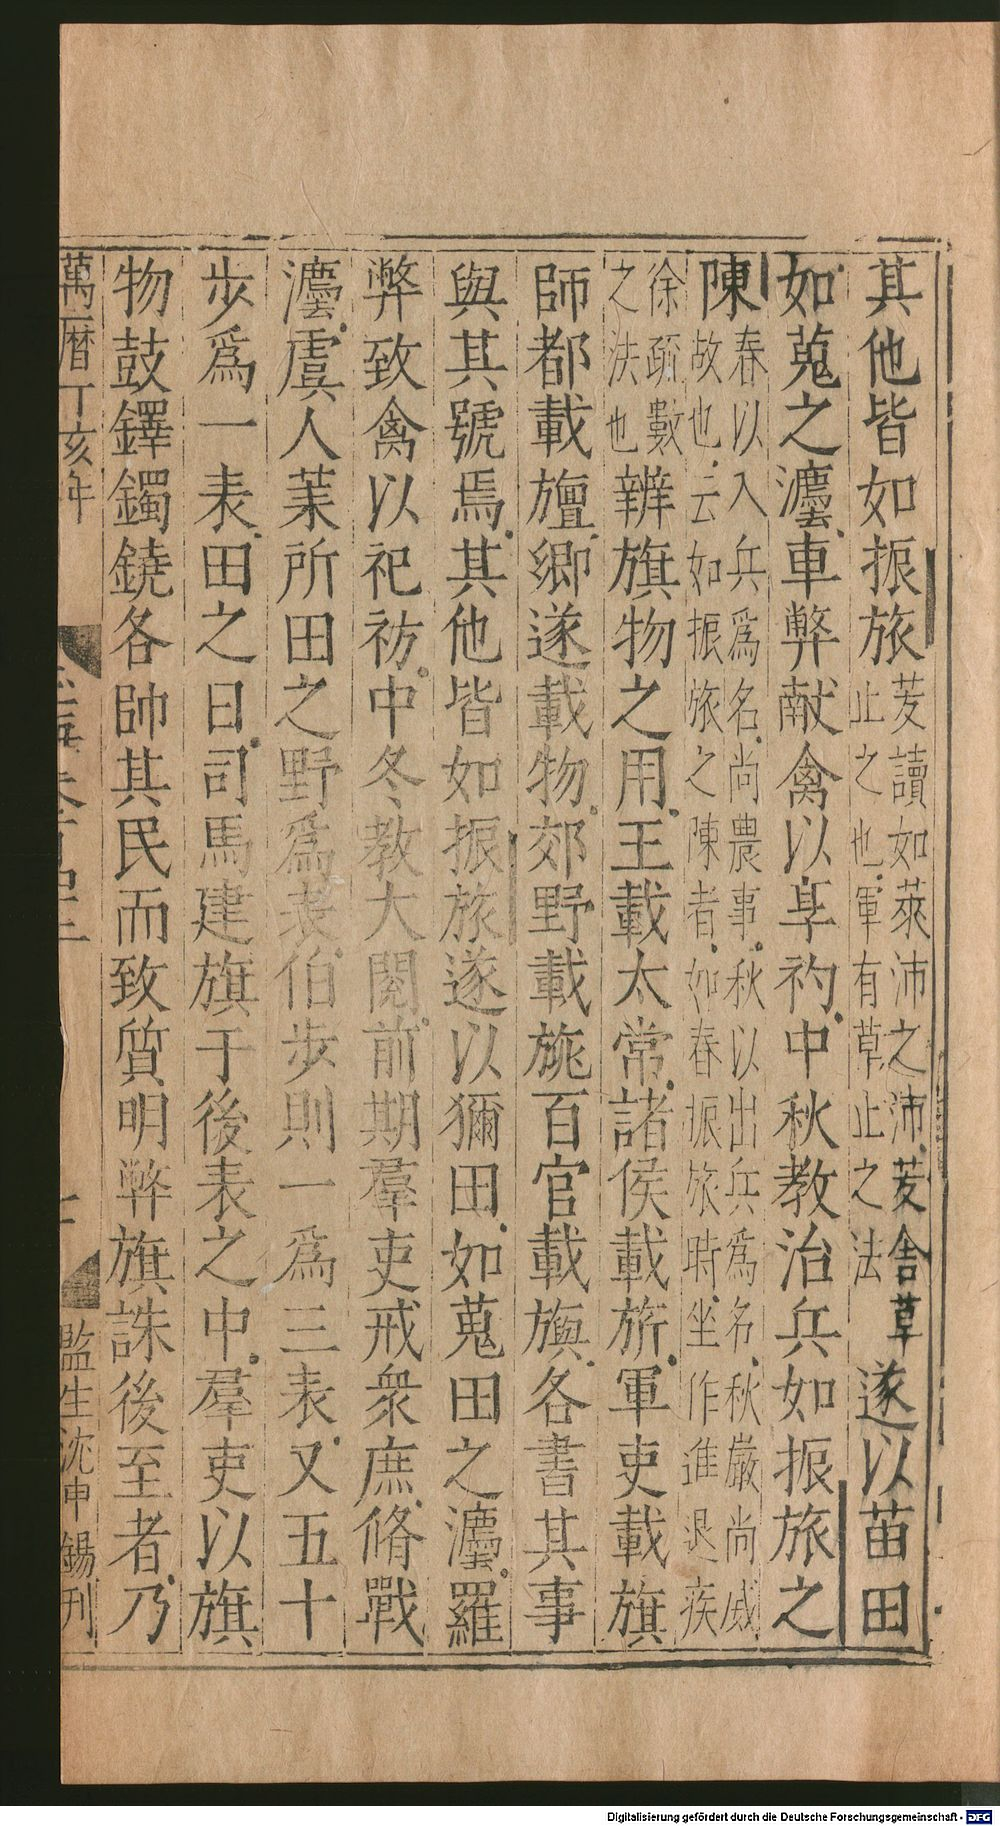 其他皆如振旅茇讀如萊沛之沛茇舍草止之也軍有草止之法遂以苗田
如蒐之灋車弊獻禽以享礿中秋教治兵如振旅之
陳春以入兵爲名尚農事秋以出兵爲名秋嚴尚威故也云如振旅之陳者如春振旅時坐作進退疾
徐疏數之法也辨旗物之用王載太常諸侯載旂軍吏載旗
師都載旜鄉遂載物郊野載旐百官載旟各書其事
與其號焉其他皆如振旅遂以獮田如蒐田之灋羅
弊致禽以祀祊中冬教大閱前期羣吏戒衆庶脩戰
灋虞人萊所田之野爲表百步則一爲三表又五十
步爲一表田之日司馬建旗于後表之中羣吏以旗
物鼓鐸鐲鐃各帥其民而致質明弊旗誅後至者乃
萬曆丁亥年
監生沈申錫刊
Digitalisierung gefördert durch die Deutsche Forschungsgemeinschaft - DFG